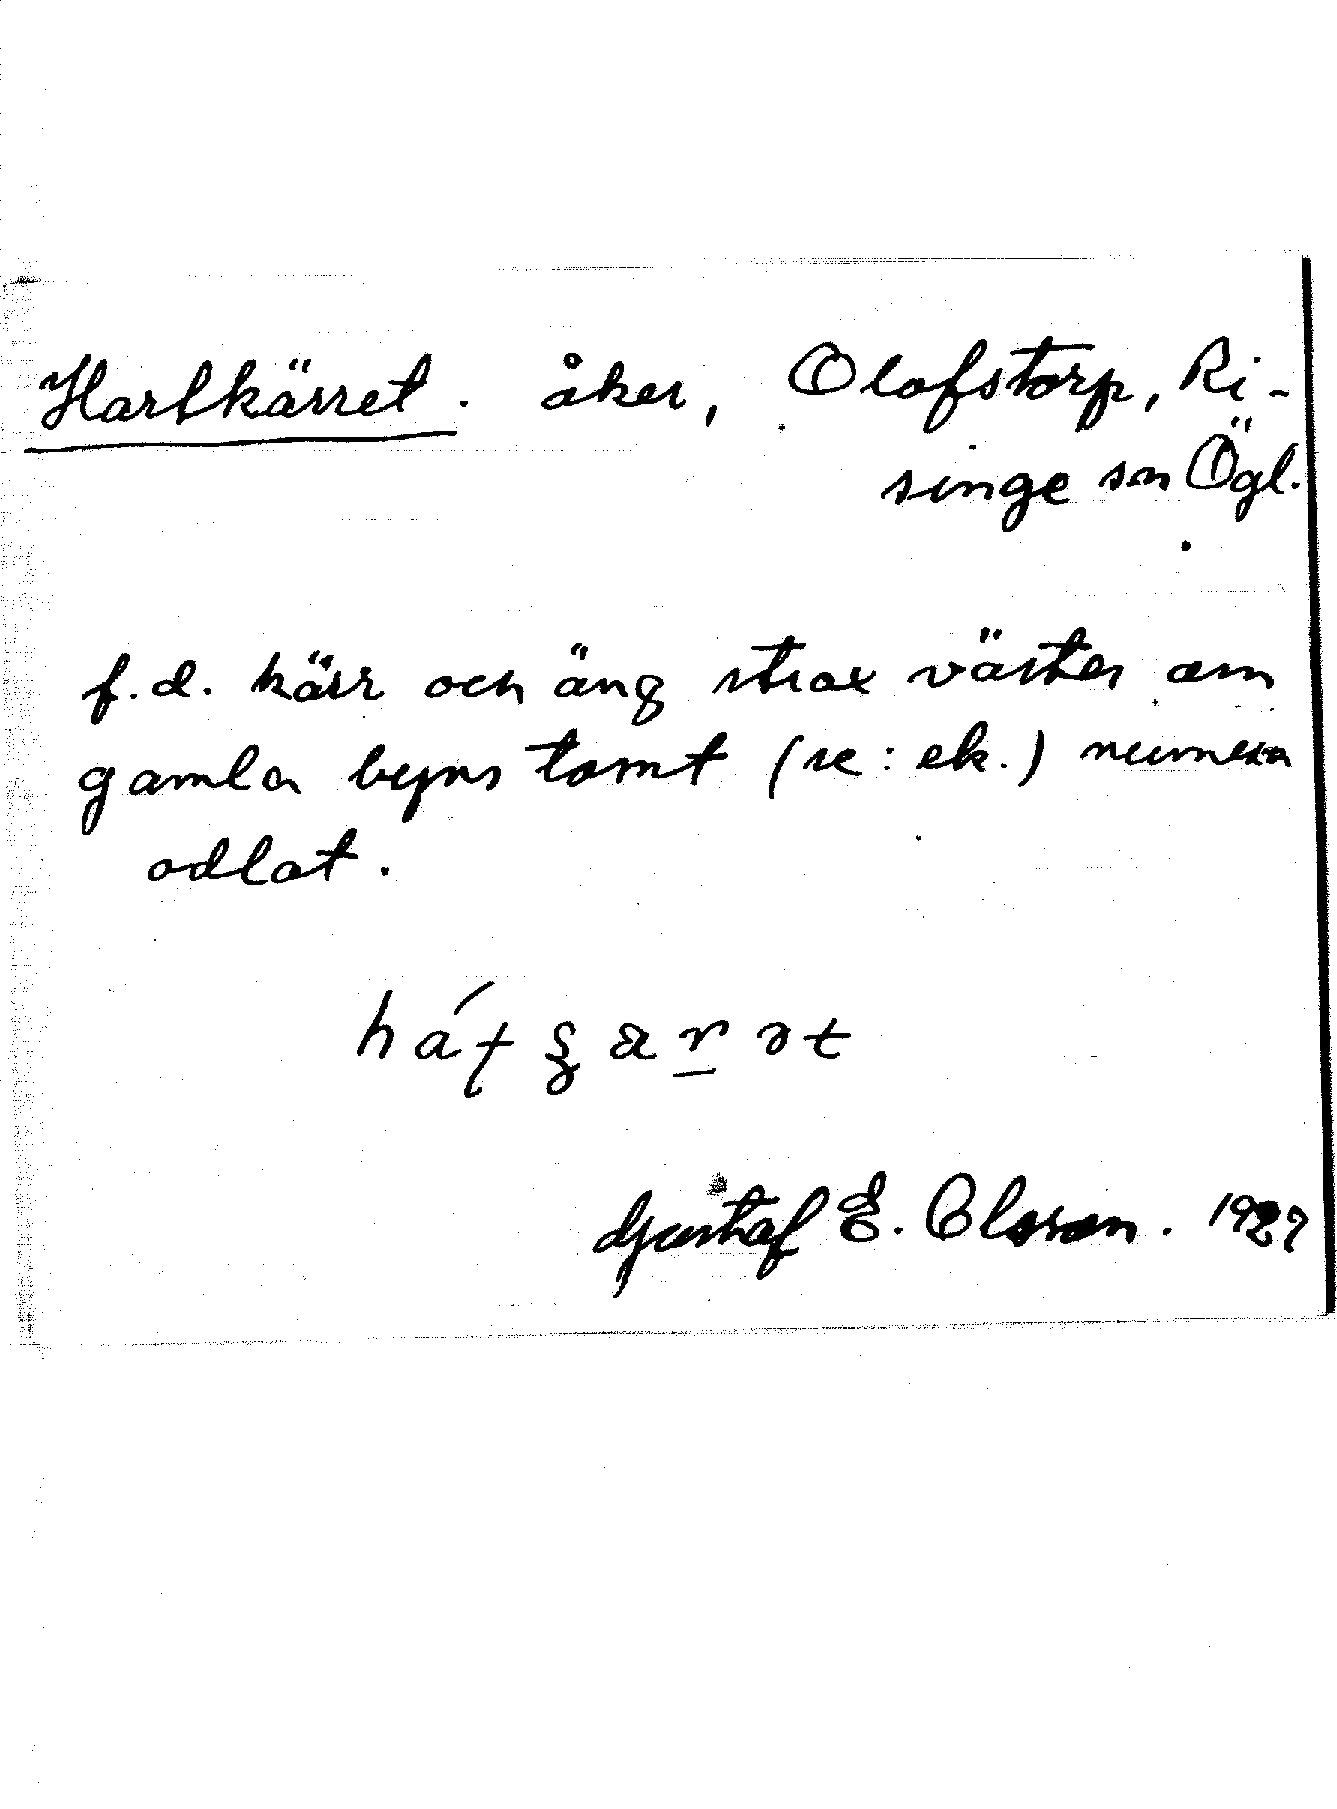 Hartkärret. åker, Olofstorp, Ri-
singe sn Ögl.
f.d. kärr och äng strax väster om
gamla byns tomt (se: ek.) numera
odlat.
Gustaf E. Olsson. 1927